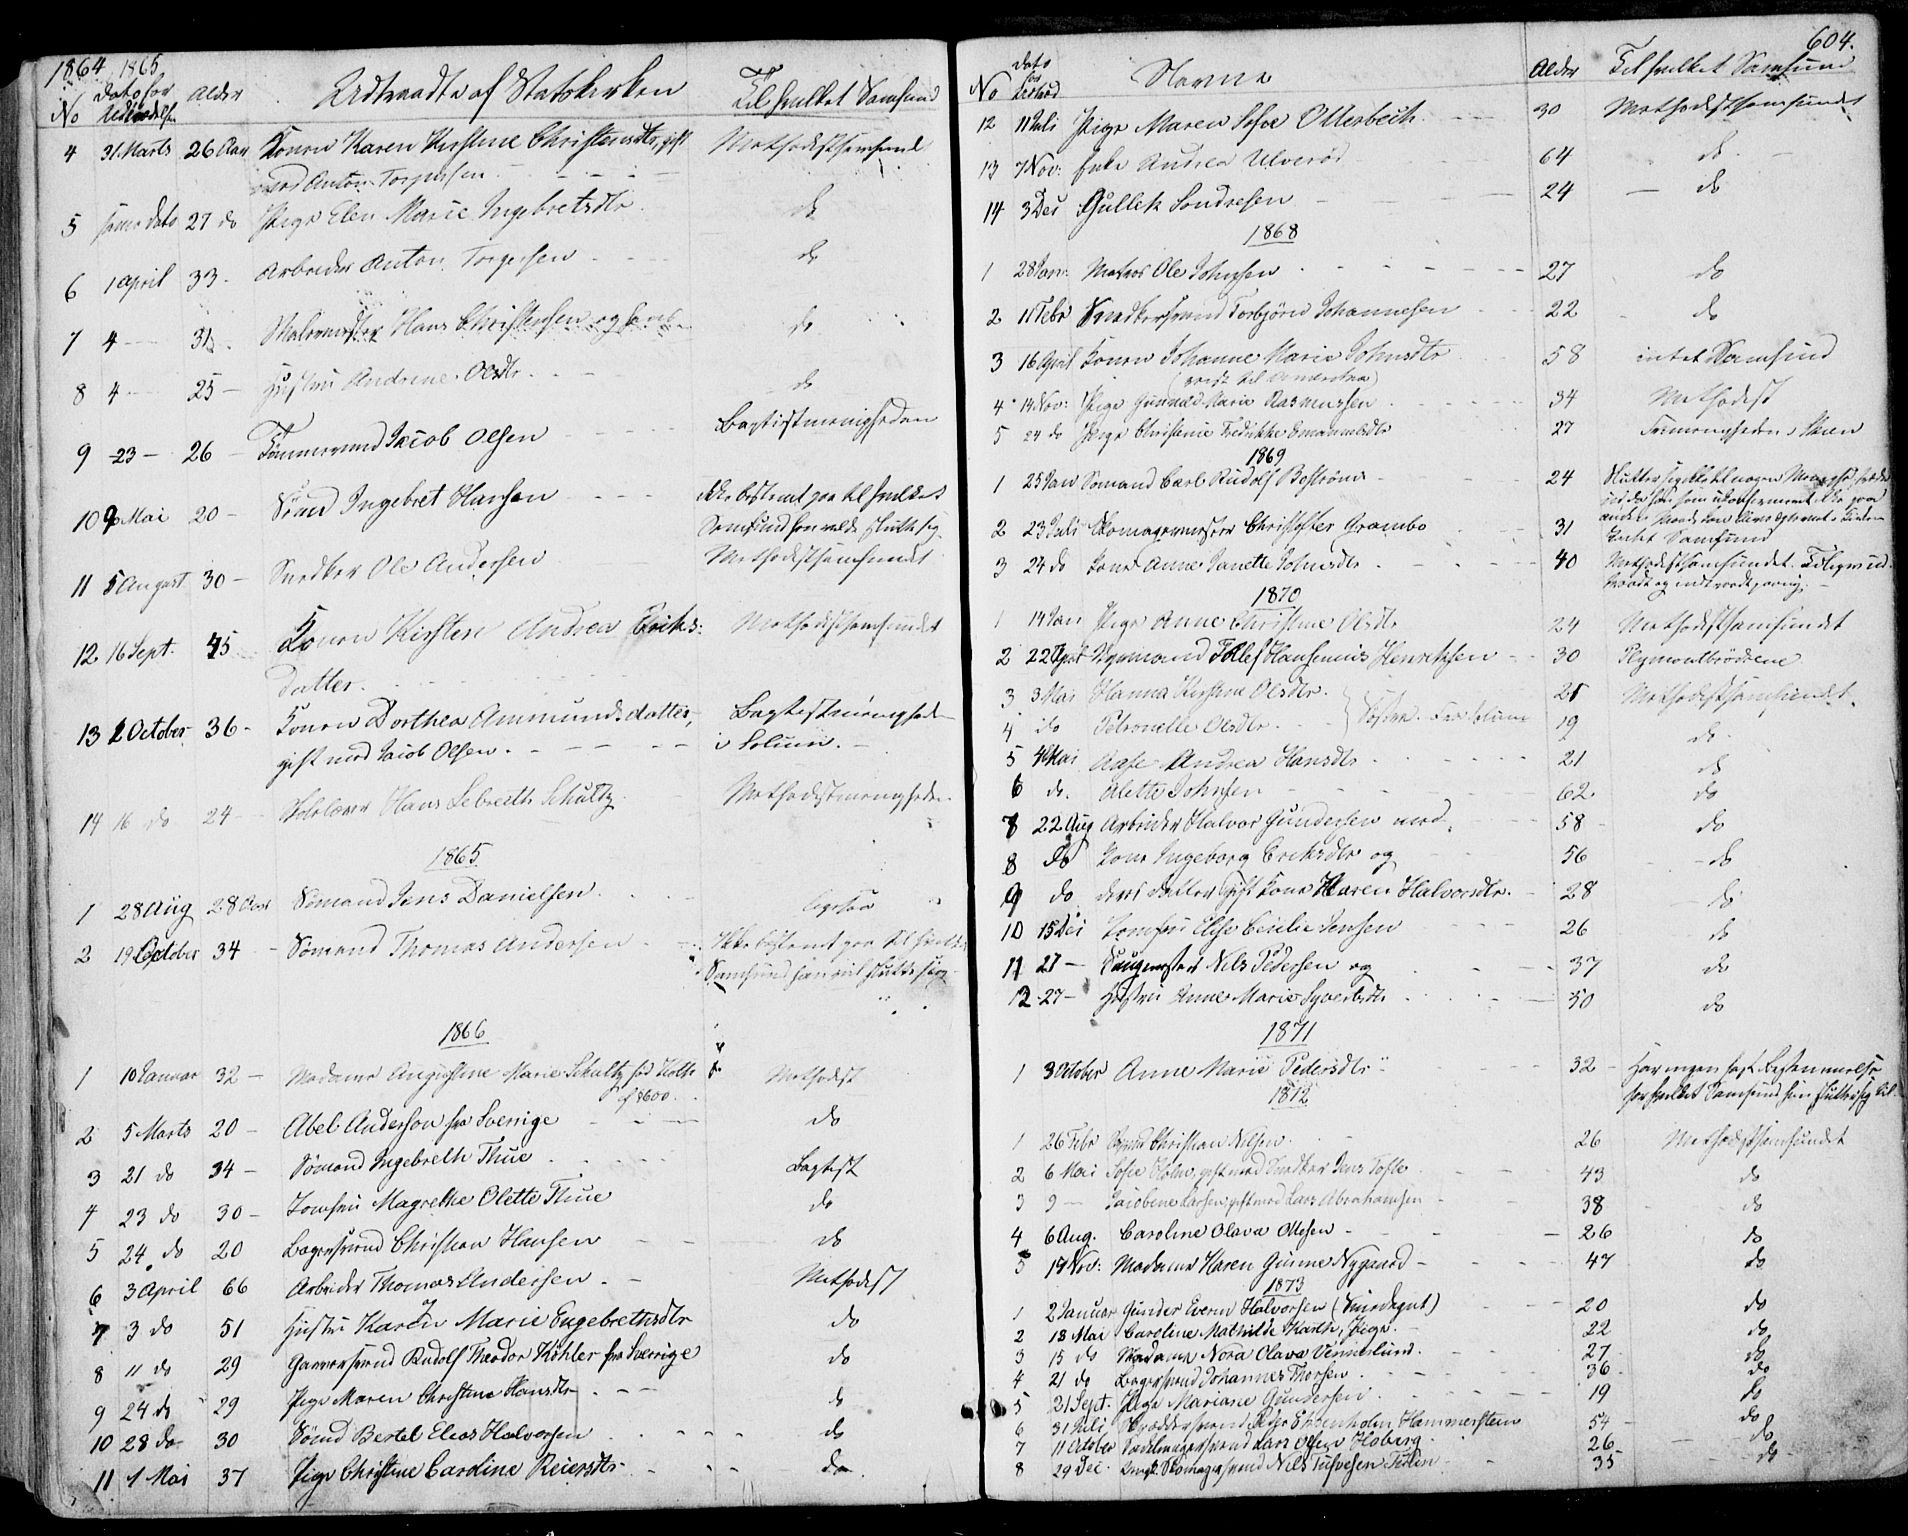 1864 1865
No Dato for Udtrædelsen Alder Udtraadte af Statskirken Til hvilket Samfund
4 31 Marts 26 Aar Konen Karen Kirstine Christensdtr, gift Methodistsamfundet
med Anton Torgersen
5 samme dato 27 do Pige Elen Marie Ingebretsdtr do
6 1 April 33 Arbeider Anton Torgersen do
7 4 31 Malermester Hans Christensen og hans do
8 4 25 Hustru Andrine Olsdtr do
9 23 26 Tømmermand Jacob Olsen Baptistmenigheden
10 9 Mai 20 Sømand Ingebret Hansen Ikke bestemt paa til hvilket
Samfund han vilde slutte sig
11 5 August 30 Snedker Ole Andersen Methodistsamfundet
12 16 Sept. 45 Konen Kirsten Andrea Eriks- Methodistsamfundet
datter
13 2 October 36 Konen Dorthea Ammundsdatter, Baptistmenigheden
gift med Jacob Olsen i Solum
14 16 do 24 Skolelærer Hans Lebrecth Schultz Methodistmenigheden
1865
1 28 Aug 28 Aar Sømand Jens Danielsen ligesaa
2 19 October 34 Sømand Thomas Andersen Ikke bestemt paa til hvilket
Samfund han vil slutte sig
1866
1 10 Januar 32 Madame Augustine Marie Schultz fød Holth Methodist
2 5 Marts 20 Abel Anderson fra Sverrige do
3 21 do 34 Sømand Ingebreth Thue Baptist
4 23 do 30 Jomfru Magrethe Olette Thue do
5 24 do 20 Bagersvend Christian Hansen do
6 3 April 66 Arbeider Thomas Andersen Methodist
7 3 do 51 Hustru Karen Marie Engebrethsdtr do
8 11 do 29 Garversvend Rudolf Theodor Köhler fra Sverrige do
9 24 do 29 Pige Maren Christine Hansdtr do
10 28 do 30 Sømd Bertel Elias Halvorsen do
11 1 Mai 37 Pige Christine Caroline Reiersdtr do
604.
No Dato for Udtræd Navne Alder Til hvilket Samfund
12 11 Juli Pige Maren Sofie Otterbech 30 Methodistsamfundet
13 7 Nov: Enke Andrea Ulverød 64 do
14 3 Dec Gullek Sondresen 24 do
1868
1 28 Jan: Matros Ole Johnsen 27 do
2 11 Febr Snedkersvend Torbjørn Johannesen 22 do
3 16 April Konen Johanne Marie Johnsdtr 58 intet Samfund
(reist til Amerika)
4 14 Nov: Pige Gunnild Marie Rasmussen 34 Methodist
5 24 do Pige Christine Fredrikke Emanuelsdtr 27 Frimenigheden i Skien
1869
1 25 Jan Sømand Carl Rudolf Bostrøm 24 Slutter sig ikke til nogen Menighed
2 23 Juli Skomagermester Christoffer Grambo 31 Intet Samfund
3 24 do Kone Anne Janette Johnsdtr 40 Methodistsamfundet
1870
1 14 Jan Pige Anne Christine Olsdtr 24 Methodistsamfundet
2 22 April Tollef Hansenius Henriksen 30 Plymontbrødrene
3 3 Mai Hanna Kirstine Olsdtr. 21 Methodistsamfundet
4 do Petronelle Olsdtr. Søstre. Fra Solum 19 do
5 4 Mai Aase Andrea Hansdtr 21 do
6 do. Alette Johnsen 62 do
7 22 Aug Arbeider Halvor Gundersen med 58 do
8 do Kone Ingeborg Eriksdtr og 56 do
9 do deres datter gift Kone Maren Halvorsdtr. 28 do
10 15 Dec Jomfru Elise Cecilie Jensen 26 do
11 27 Saugmester Nils Pedersen og 37 do
12 27 Hustru Anne Marie Syvertsdtr 50 do
1871
1 3 October Anne Marie Pedersdtr 32 Har ingen fast Bestemmelse
for hvilket Samfund hun slutter sig til
1872
1 26 Febr Christian Nilsen 26 Methodistsamfundet
2 6 Mai Sofie Holm, gift med Snedker Jens Tofte 43 do
3 9 Jacobine Larsen, gift med Lars Abrahamsen 38 do
4 6 Aug. Caroline Olava Olsen 26 do
5 19 Nov: Madame Karen Gurine Nygaard 47 do
1873
1 2 Januar Gunder Evern Halvorsen (Smedegut) 20 do
2 18 Mai Caroline Mathilde Karth, Pige. 22 do
3 15 do Madame Nora Olava Vennerlund. 27 do
4 21 do Bagersvend Johannes Thorsen 36 do
5 21 Sept. Pige Mariane Gundersen 19 do
6 31 Juli Skræddersvend Peder Ekkenholm Hammerstein 54 do
7 11 October Sadelmagersvend Lars Olsen Hoberg 26 do
8 29 Dec. Skomagersvend Nils Tufvesen 35 do